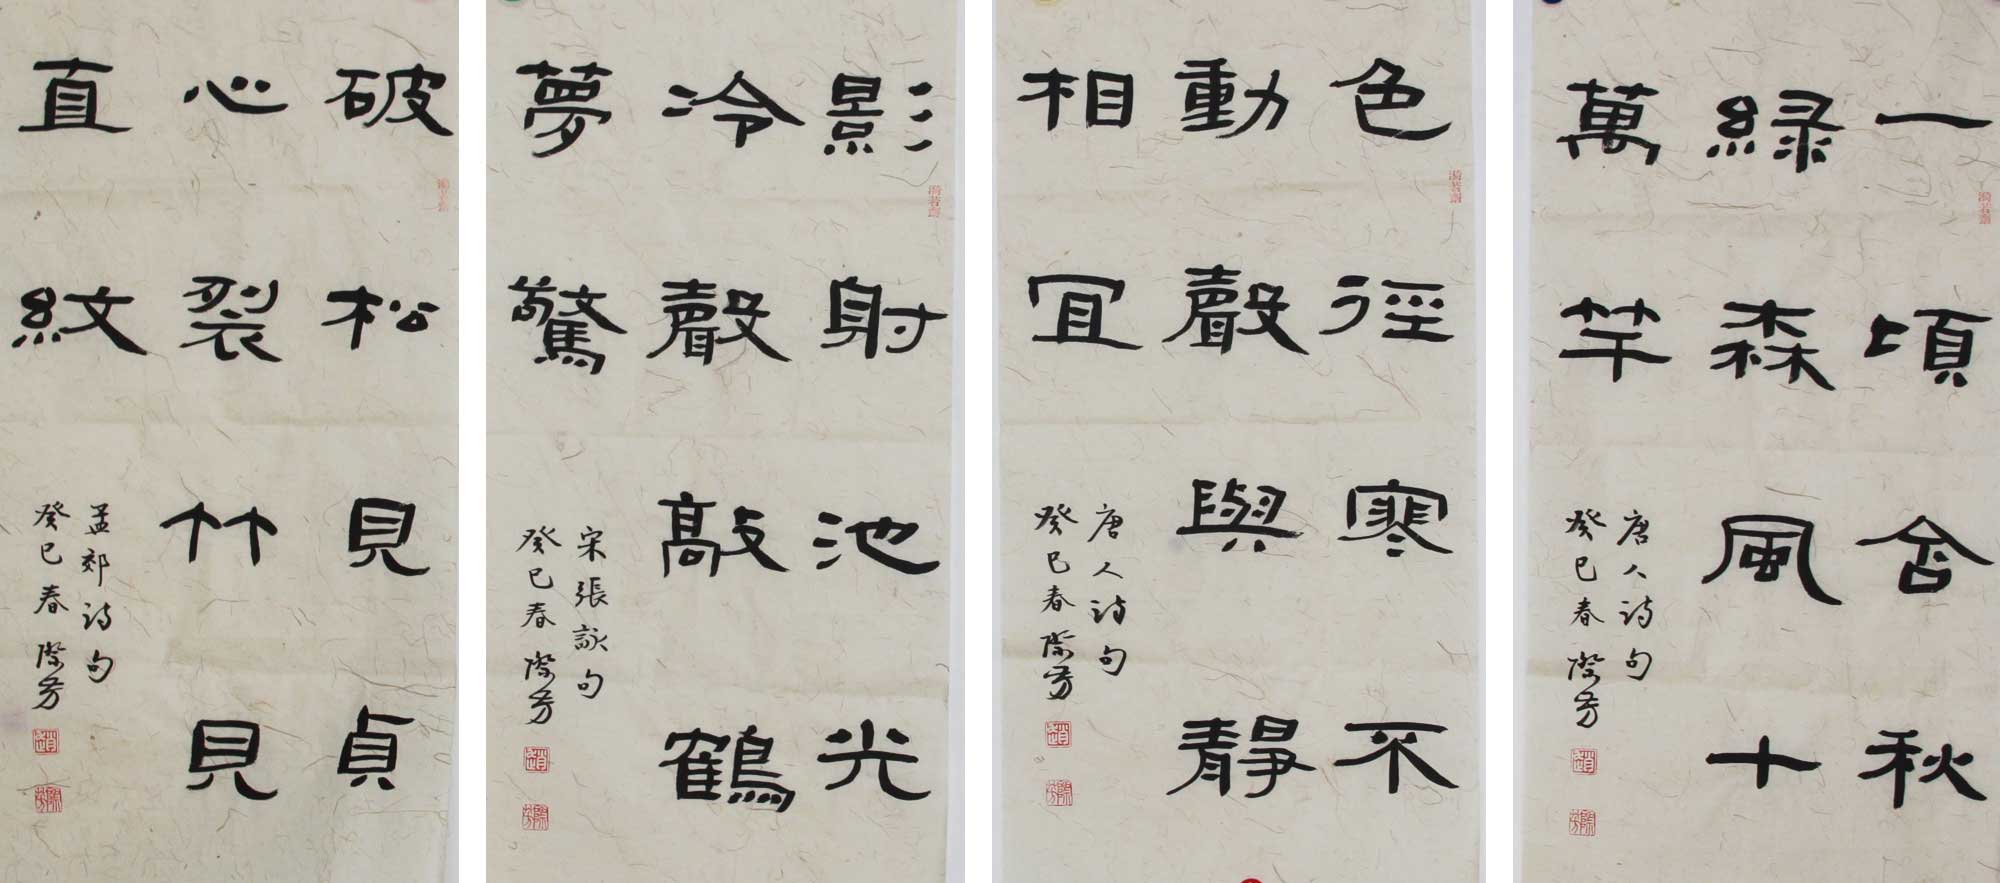 一頃含秋
綠森風十
萬竿
唐人詩句
癸巳春 際芳
色徑寒不
動聲與靜
相宜
唐人詩句
癸巳春 際芳
影射池光
冷聲敲鶴
夢驚
宋張詠句
癸巳春 際芳
破松見貞
心裂竹見
直紋
孟郊詩句
癸巳春 際芳